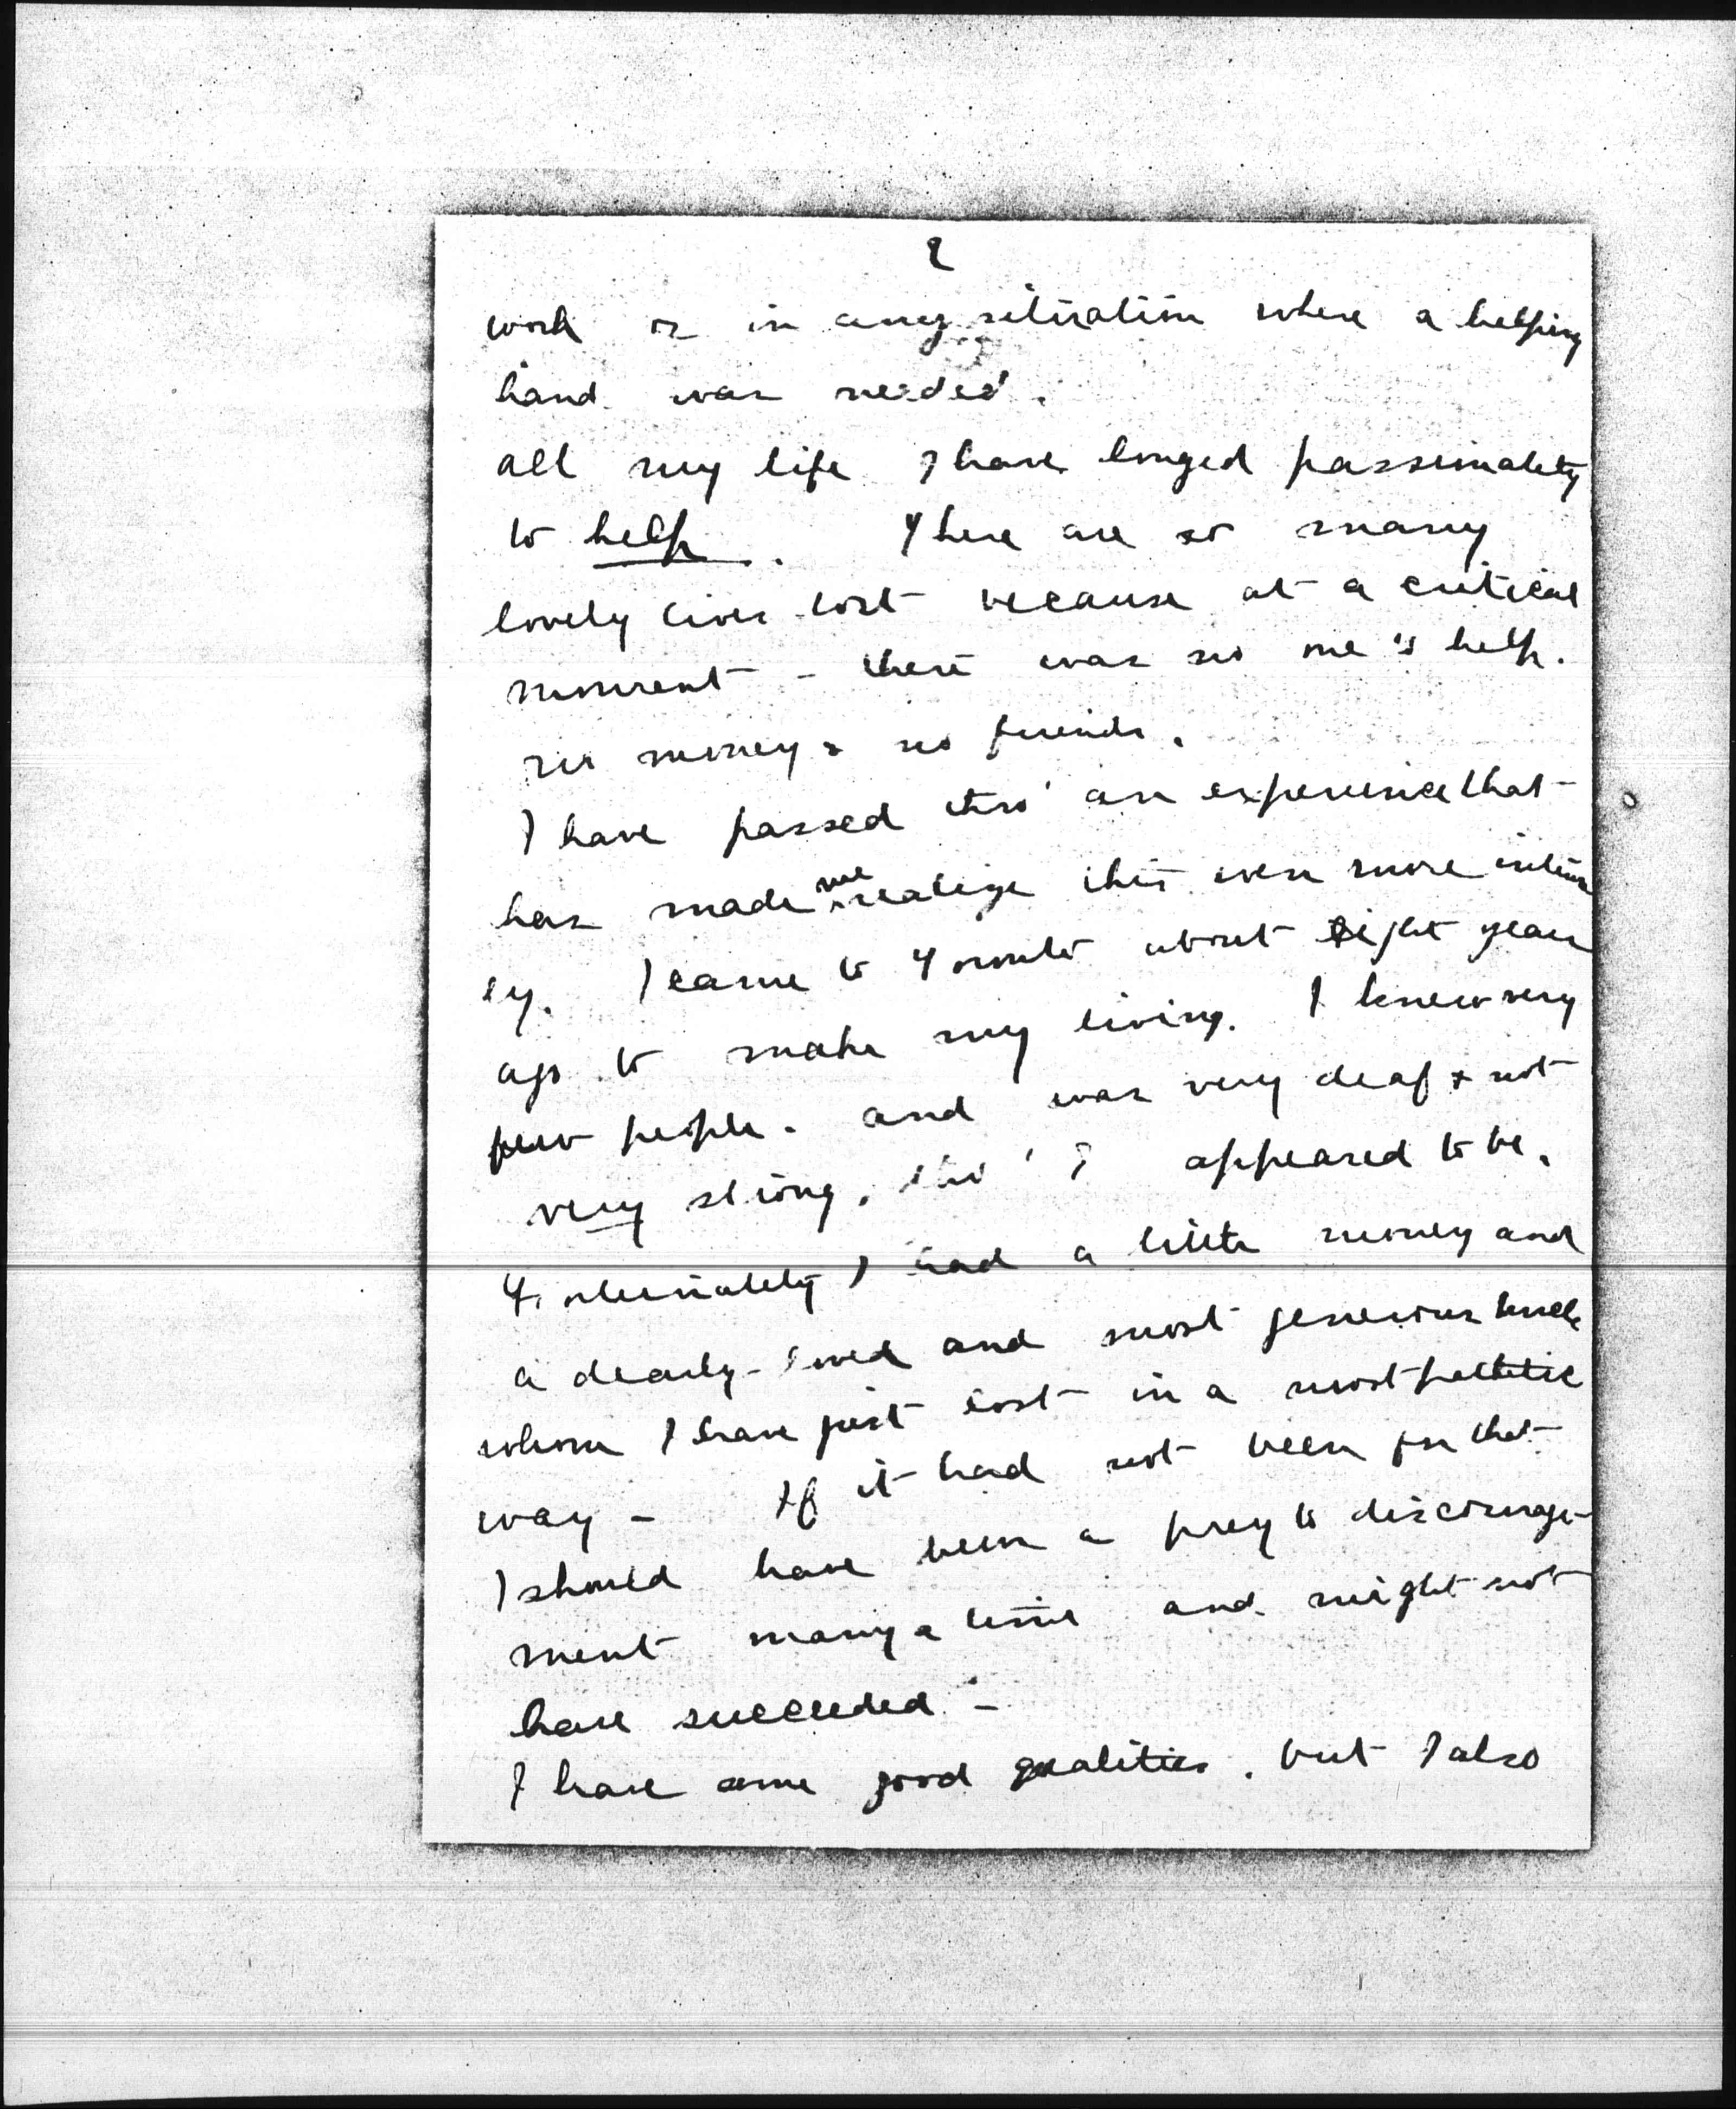 2
work or in any situation where a helping
hand was needed.
all my life I have longed passionately
to help. There are so many
lovely lives lost because at a critical
moment - there was no one to help.
no money & no friends.
I have passed thro' an experience that
has made me realize this even more intense
ly. I came to Toronto about eight years
ago to make my living. I knew very
few people. and was very deaf & not
very strong, tho' I appeared to be.
Fortunately I had a little money and
a dearly-loved and most generous Uncle
whom I have just lost in a most pathetic
way - If it had not been for that
I should have been a prey to discourage-
ment many a time and might not
have succeeded -
I have some good qualities. but I also